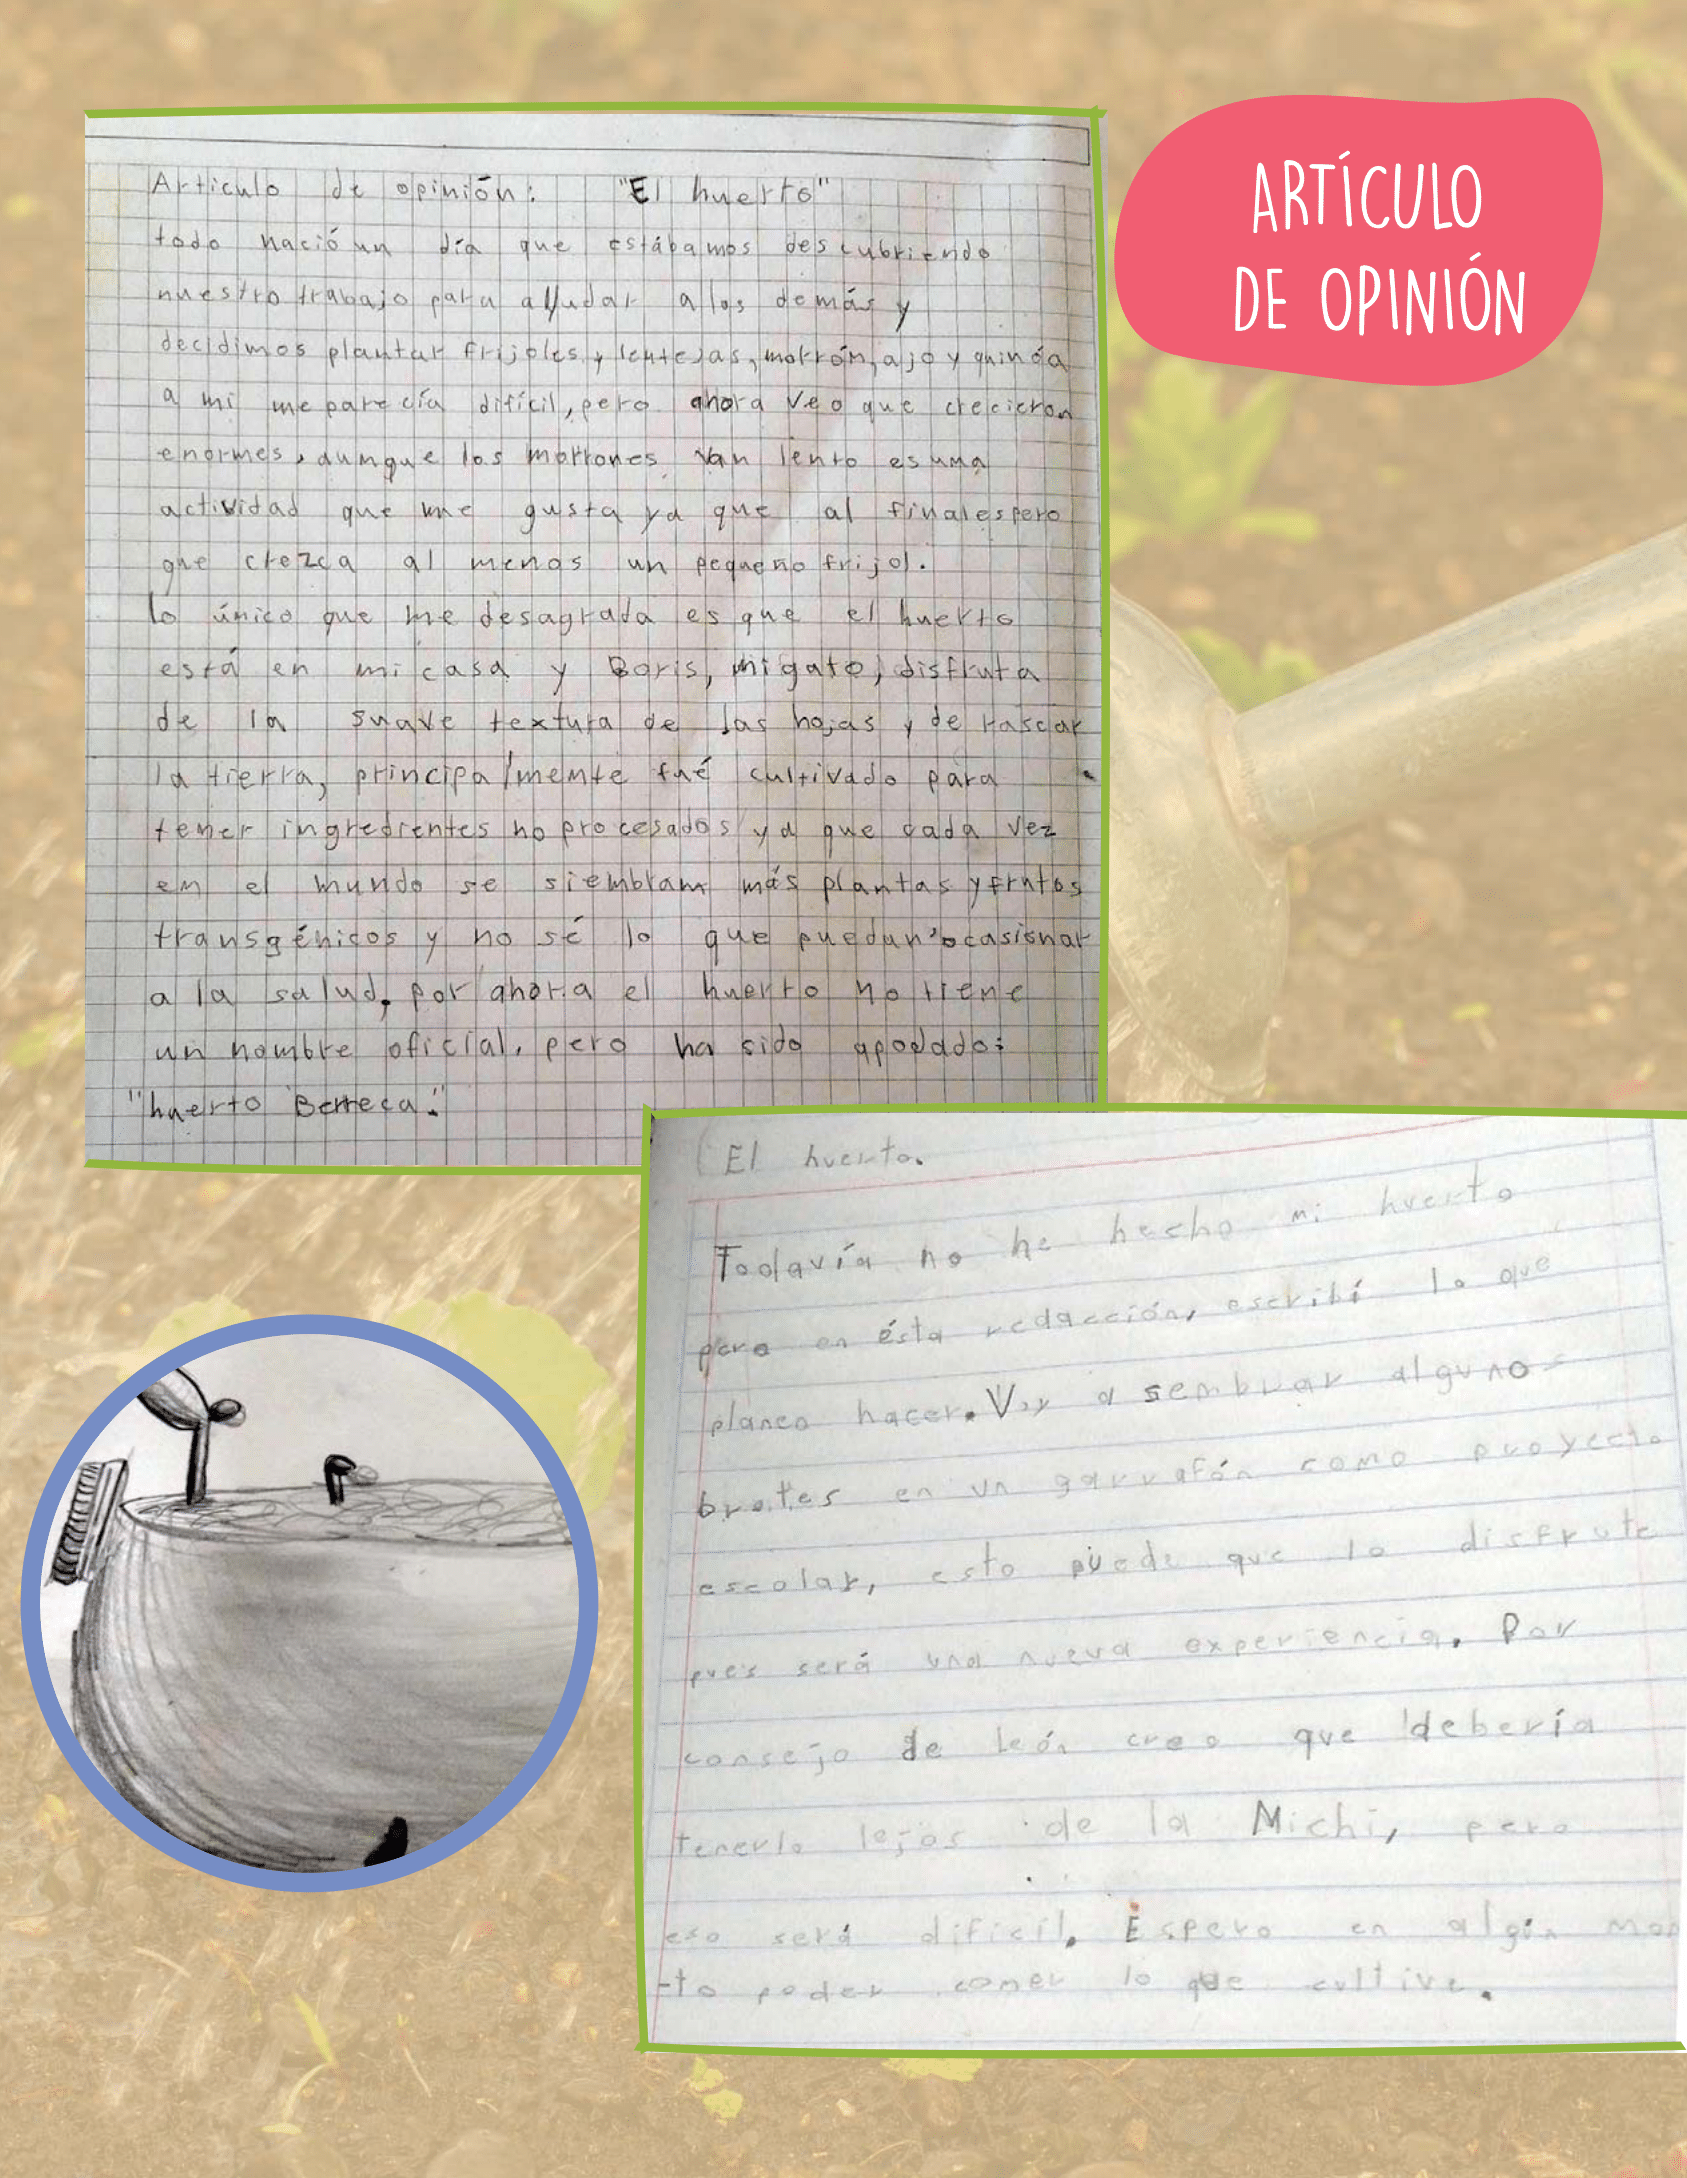 ARTÍCULO
DE OPINIÓN
Artículo de opinión: "El huerto"
todo nació un día que estábamos descubriendo
nuestro trabajo para alludar a los demás y
decidimos plantar frijoles y lentejas, morrón, ajo y quinóa
a mi me parecía difícil, pero ahora veo que crecieron
enormes, aunque los morrones van lento es una
actividad que me gusta ya que al final espero
que crezca al menos un pequeño frijol.
lo único que me desagrada es que el huerto
está en mi casa y Boris, mi gato, disfruta
de la suave textura de las hojas y de rascar
la tierra, principalmente fué cultivado para
tener ingredientes no procesados ya que cada vez
en el mundo se siembran más plantas y frutos
transgénicos y no sé lo que puedan ocasionar
a la salud. por ahora el huerto no tiene
un nombre oficial, pero ha sido apodado:
"huerto Berreca."
El huerto.
Todavía no he hecho mi huerto
pero en ésta redacción, escribí lo que
planeo hacer. Voy a sembrar algunos
brotes en un garrafón como proyecto
escolar, esto puede que lo disfrute
pues será una nueva experiencia. Por
consejo de león creo que debería
tenerlo lejos de la Michi, pero
eso será difícil. Espero en algún mon
-to poder comer lo que cultive.